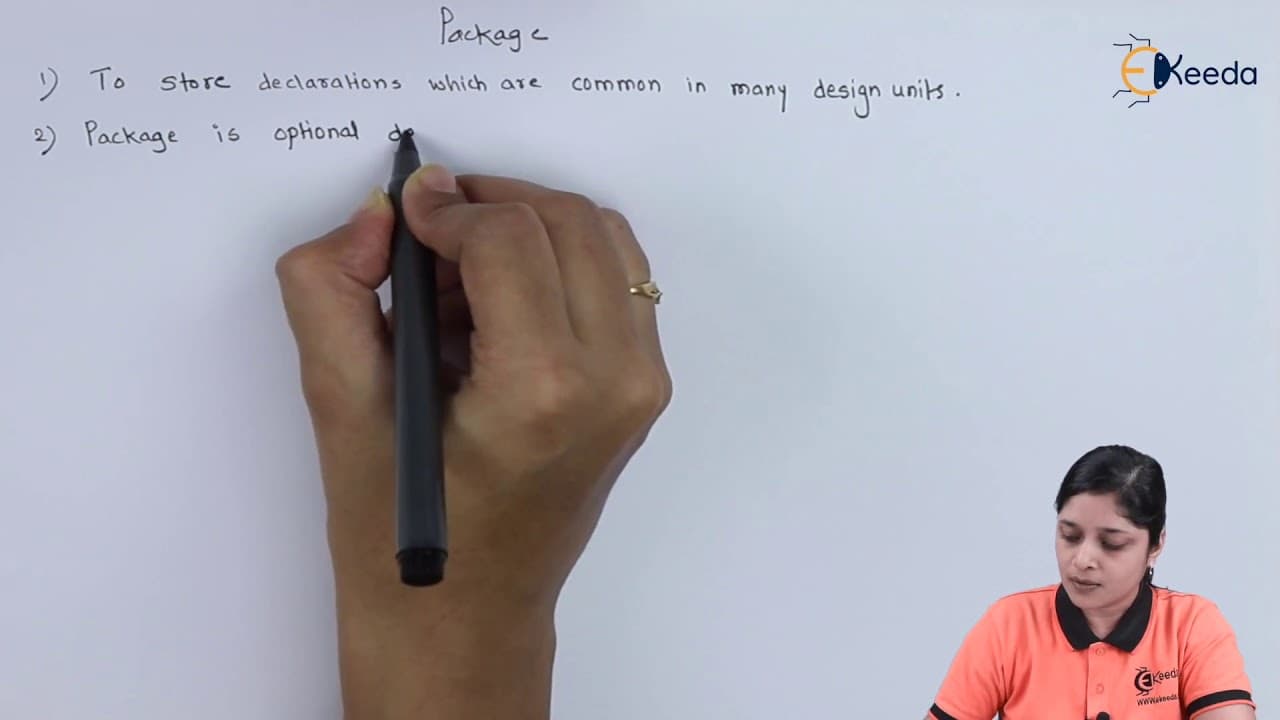 Package
1) To store declarations which are common in many design units.
2) Package is optional de
EKeeda
EKeeda